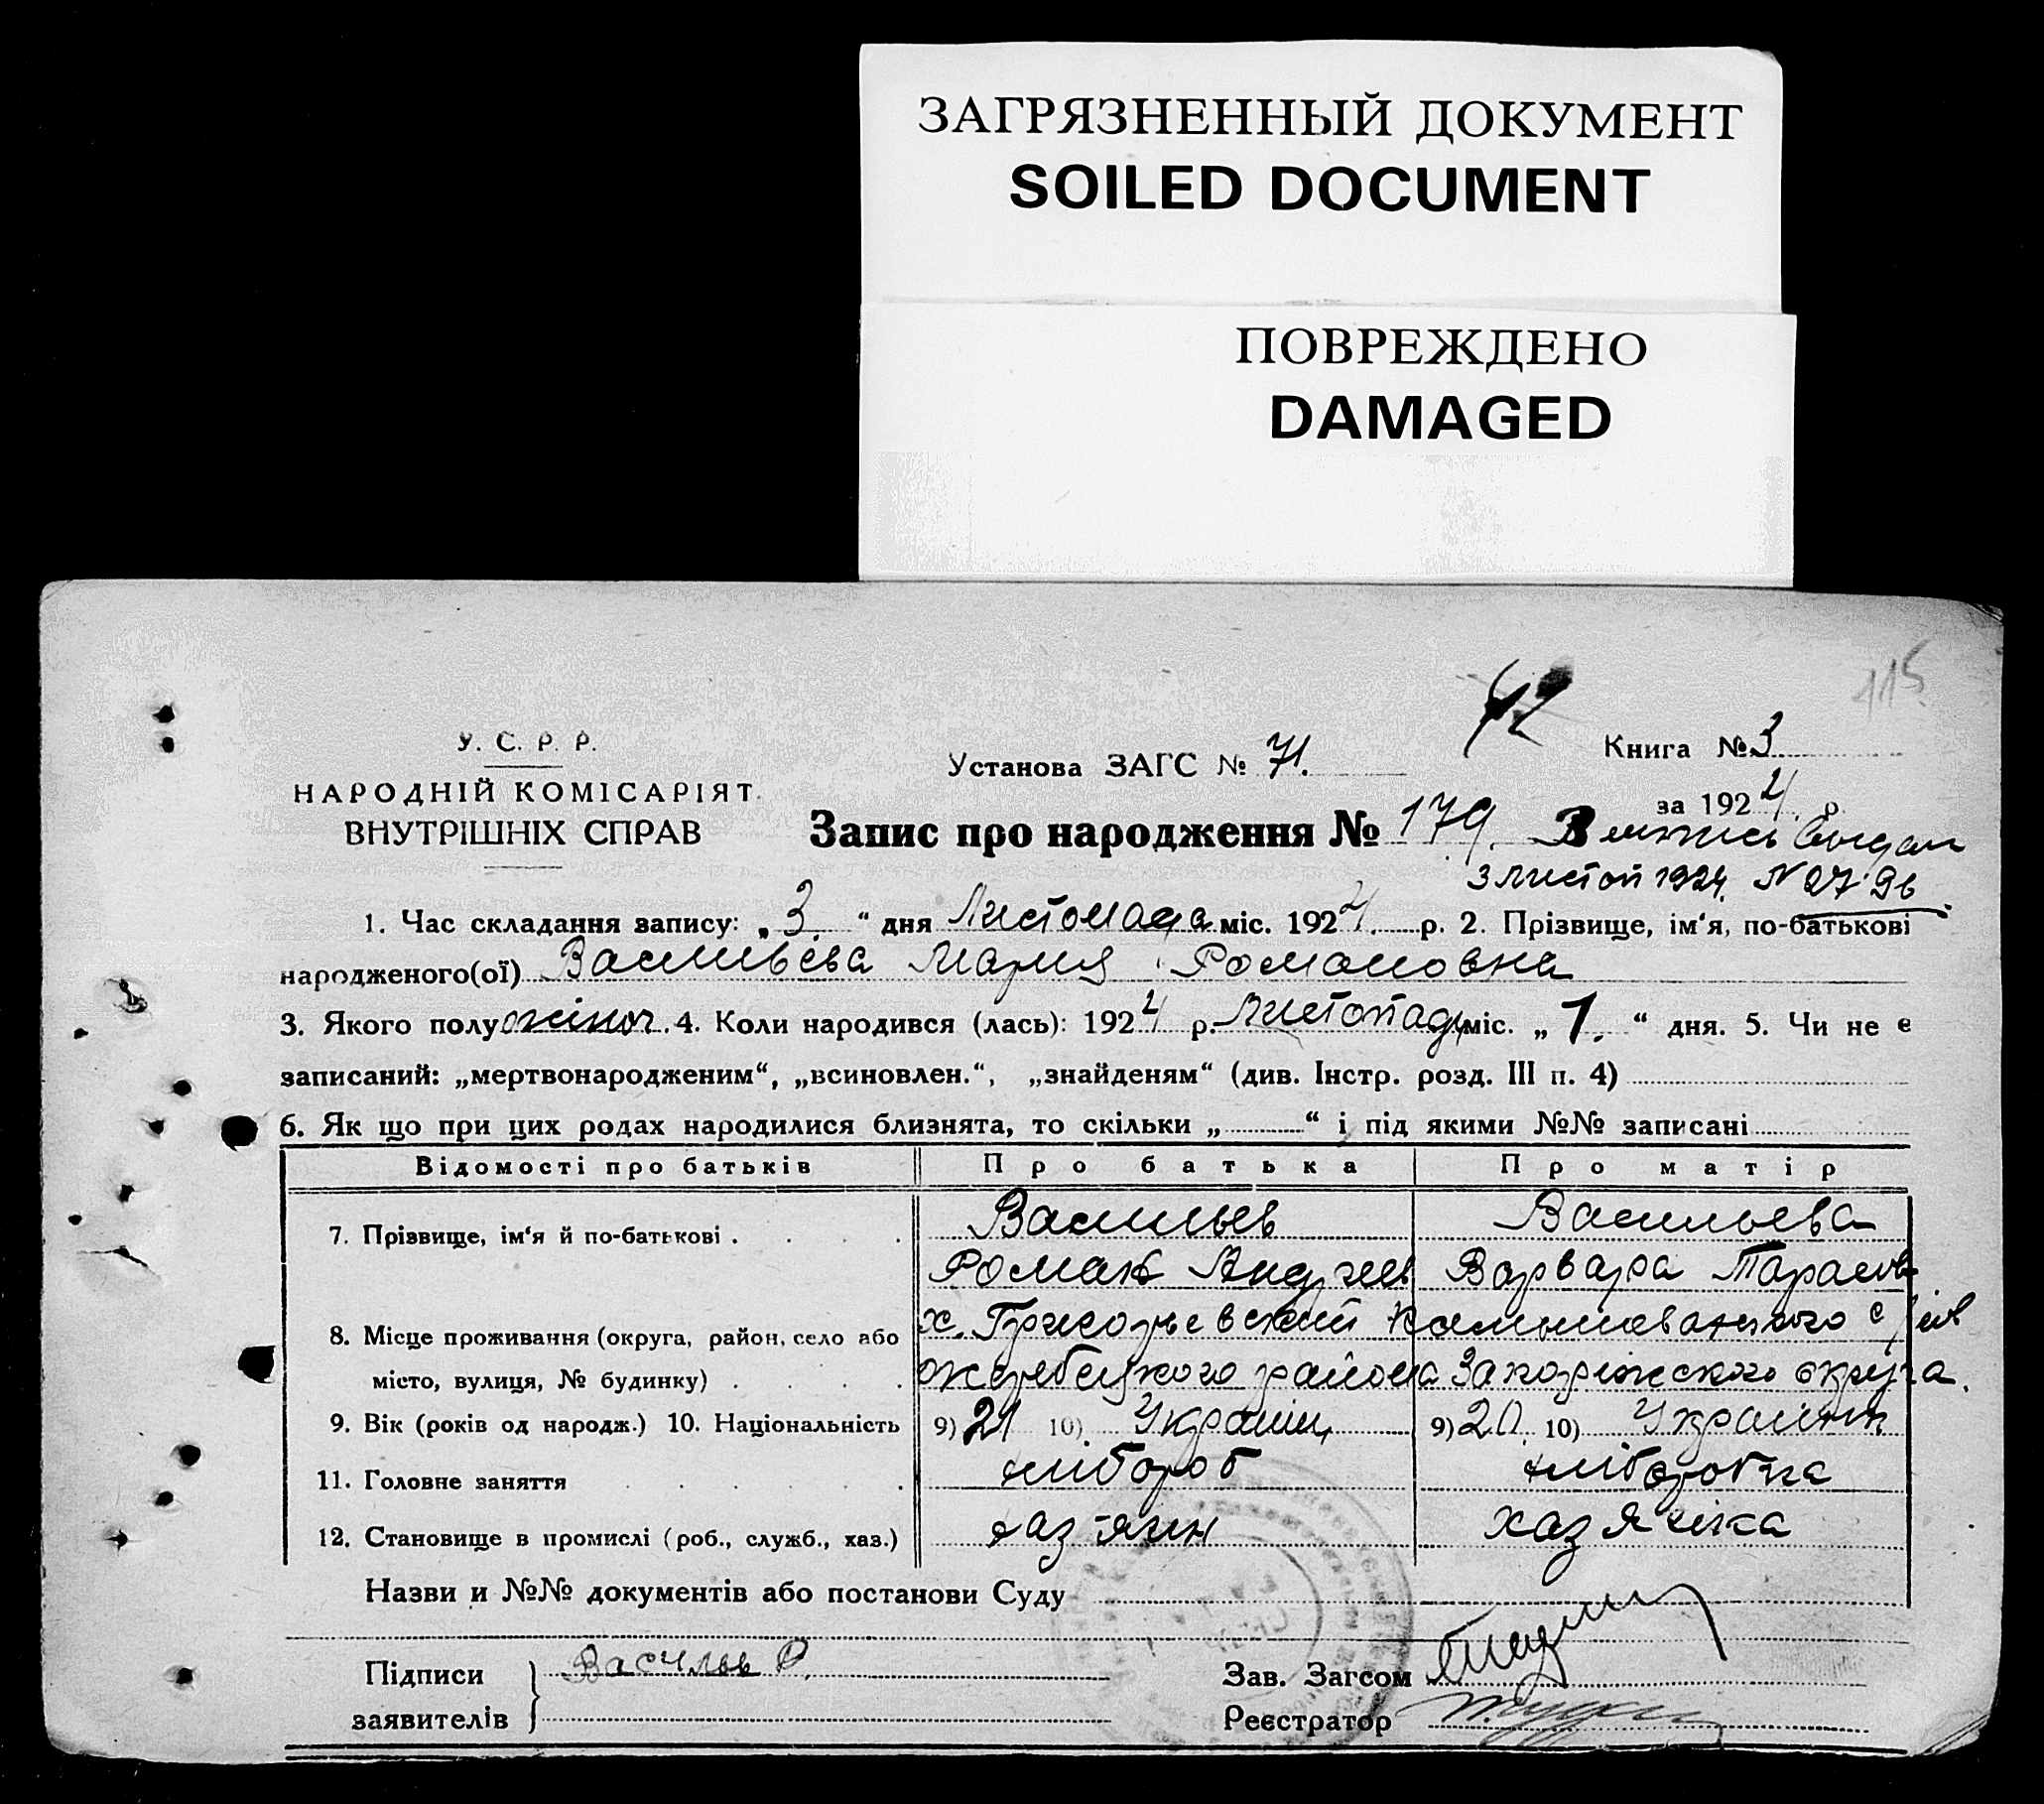 ЗАГРЯЗНЕННЫЙ ДОКУМЕНТ
SOILED DOCUMENT
ПОВРЕЖДЕНО
DAMAGED
115
42
У. С. Р. Р.
НАРОДНІЙ КОМІСАРІЯТ
ВНУТРІШНІХ СПРАВ
Установа ЗАГС № 71.
Книга № 3
за 1924 р.
Запис про народження № 179.
3 листоп 1924. № 2796
1. Час складання запису: „3.“ дня Листопада міс. 1924. р. 2. Прізвище, ім‘я, по-батькові
народженого(ої) Васильєва Мария Романовна
3. Якого полу жіноч. 4. Коли народився (лась): 1924 р. Листопада міс. „1.“ дня. 5. Чи не є
записаний: „мертвонародженим“, „всиновлен.“, „знайденям“ (див. Інстр. розд. III п. 4)
6. Як що при цих родах народилися близнята, то скільки „ “ і під якими №№ записані
Відомості про батьків Про батька Про матір
7. Прізвище, ім‘я й по-батькові . . . . Васильев Васильева
Роман Андреев Варвара Тарасов
8. Місце проживання (округа, район, село або х. Григорьевский Камышеванского с/
місто, вулиця, № будинку) . . . . Жеребецкого района Запоріжского округа.
9. Вік (років од народж.) 10. Національність 9) 21 10) Украінц 9) 20. 10) Украінк
11. Головне заняття . . . . . . хлібороб хліборобка
12. Становище в промислі (роб., служб., хаз.) хазяин хазяйка
Назви и №№ документів або постанови Суду
Підписи Васильев Р.
заявителів
Зав. Загсом
Реєстратор